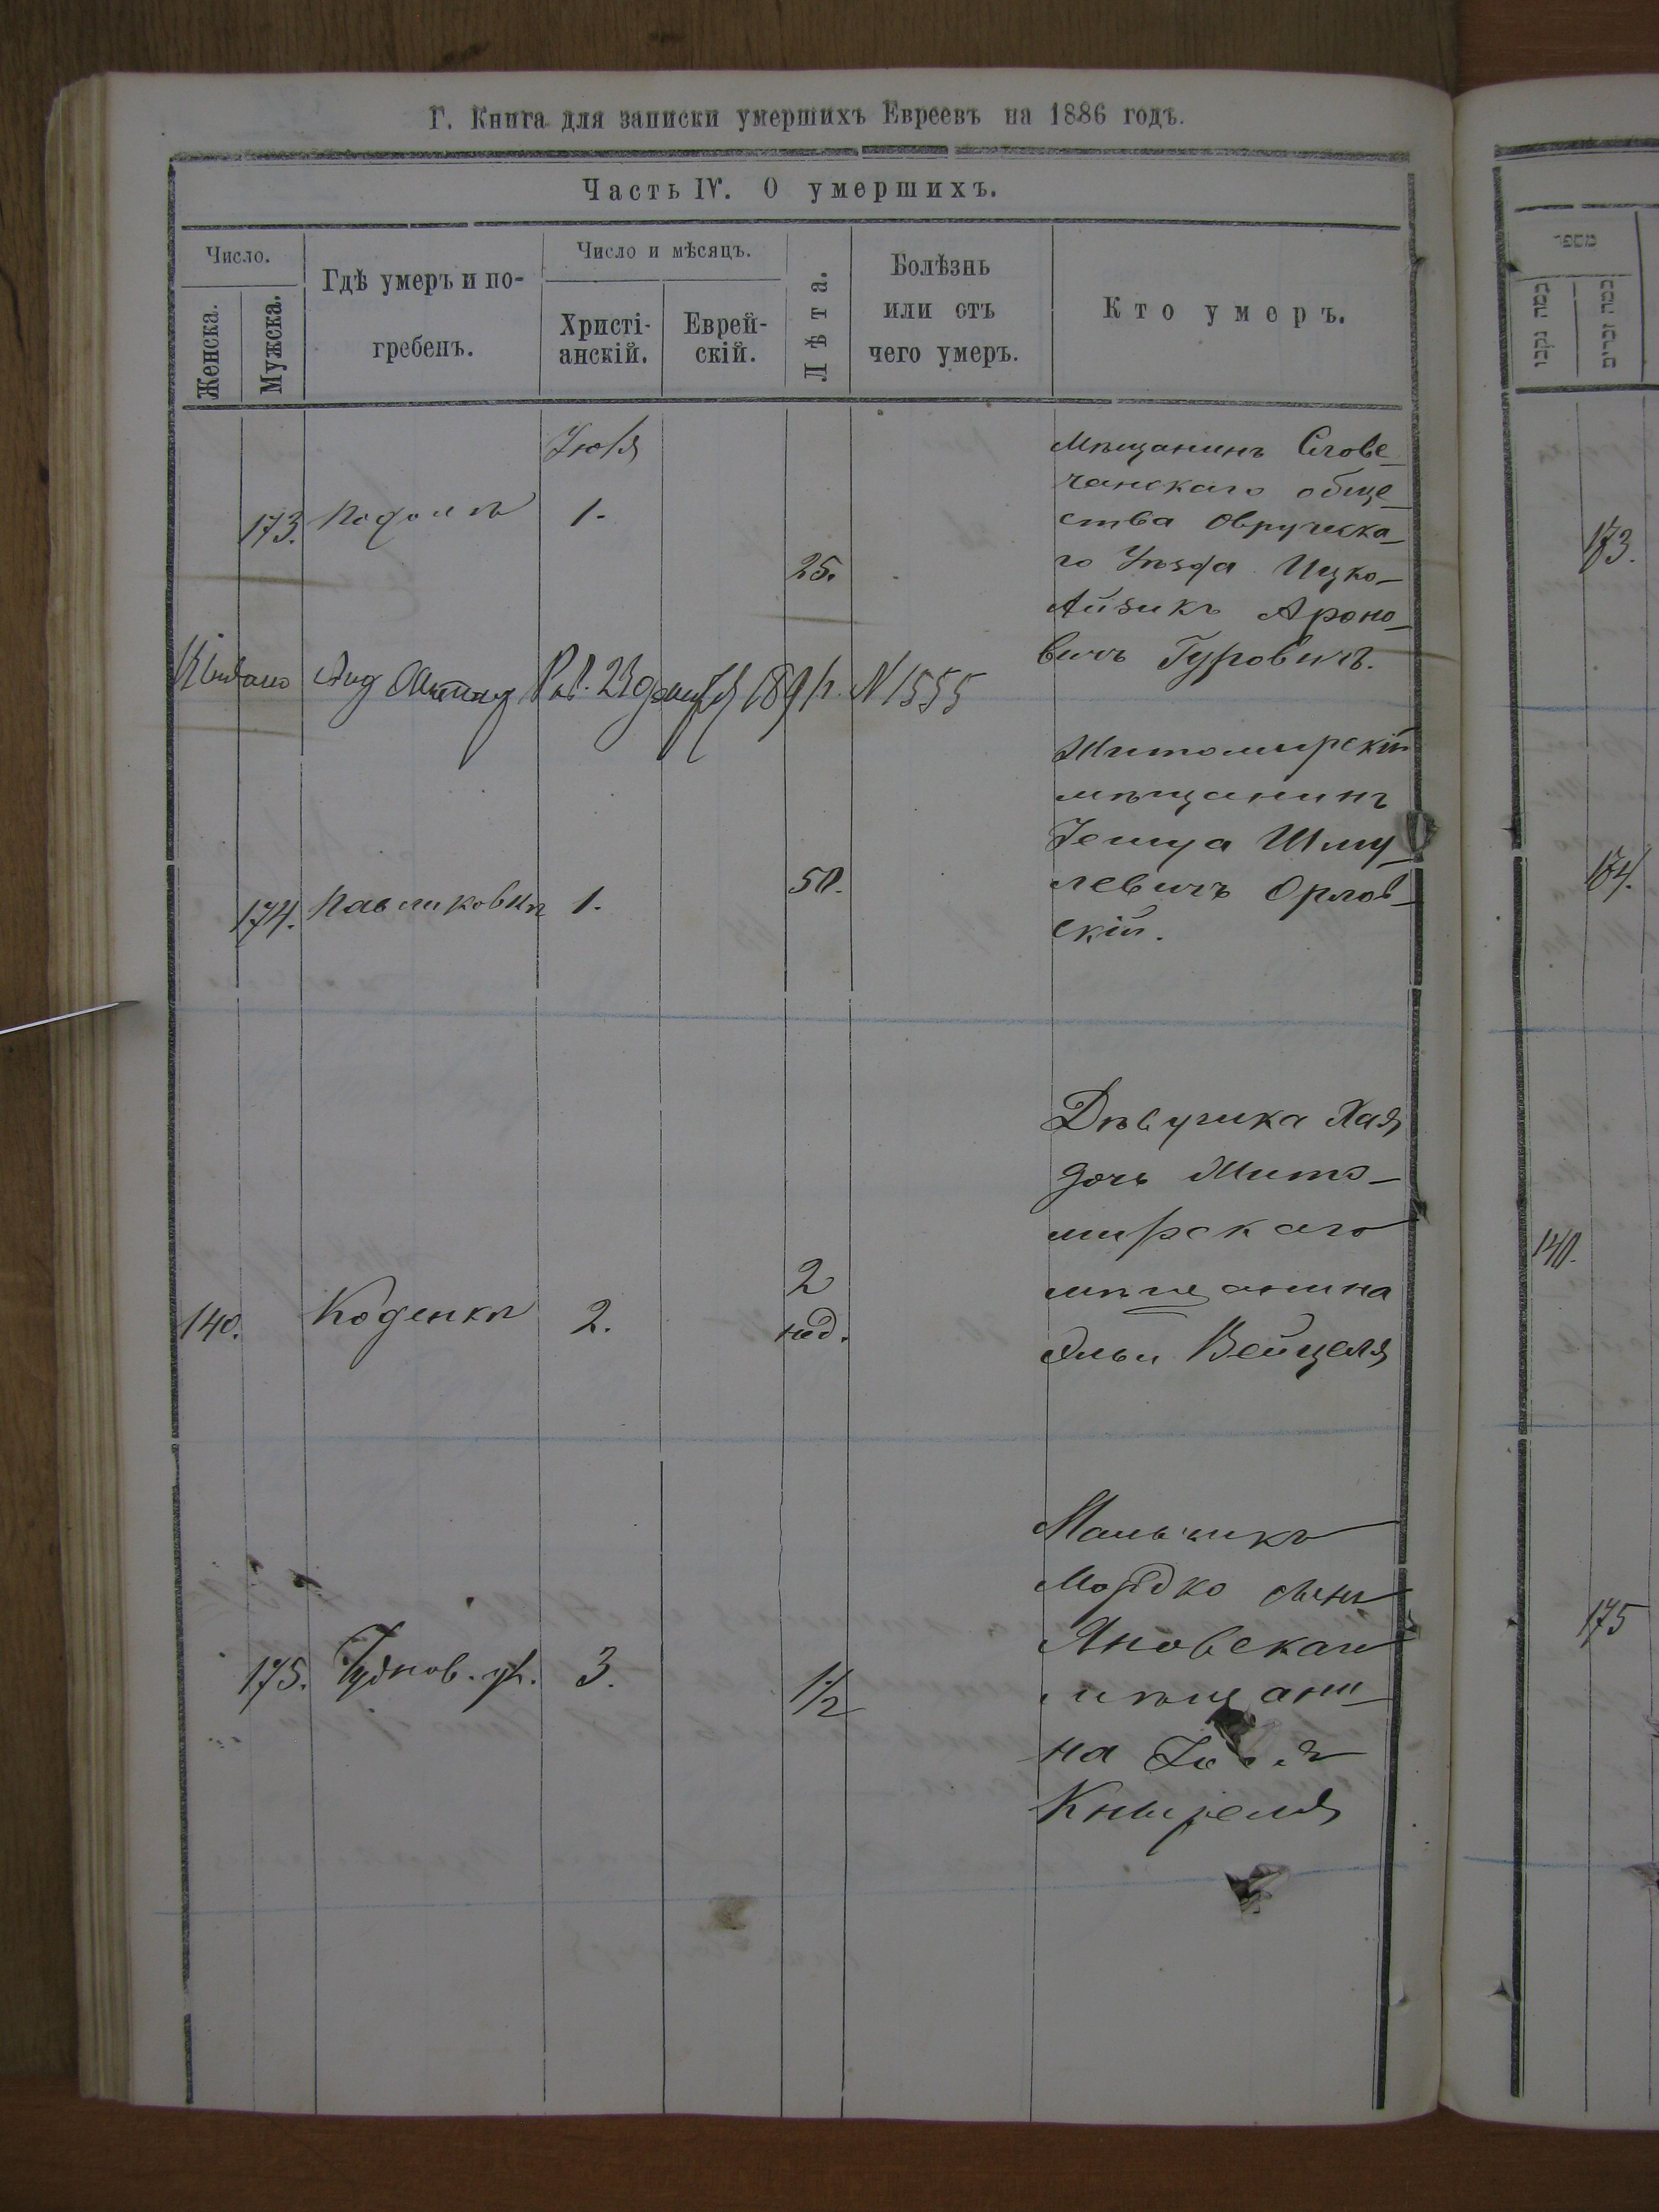 Г. Книга для записки умершихъ Евреевъ на 1886 годъ.
Часть IV. О умершихъ.
Число.
Женска.
Мужска.
Гдѣ умеръ и по-
гребенъ.
Число и мѣсяцъ.
Христі-
анскій.
Еврей-
скій.
Лѣта.
Болѣзнь
или отъ
чего умеръ.
Кто умеръ.
Іюля
173.
1.
25.
Мѣщанинъ Слове-
чанскаго обще-
ства Овручска-
го Уѣзда Ицко-
Айзикъ Ароно-
вичъ Гуровичъ.
1891 г. N 1555
174.
Павликовкѣ
1.
50.
Житомирскій
мѣщанинъ
Іешуа Шму-
левичъ Орлов-
скій.
140.
Коденкѣ
2.
2
нед.
Дѣвушка Хая
дочь Жито-
мирскаго
мѣщанина
Эльи Вейцеля
175.
Чуднов. ул.
3.
1/2
Мальчикъ
Мордко сынъ
Яновскаго
мѣщани-
на
Кныреля
מספר
173.
174.
140.
175